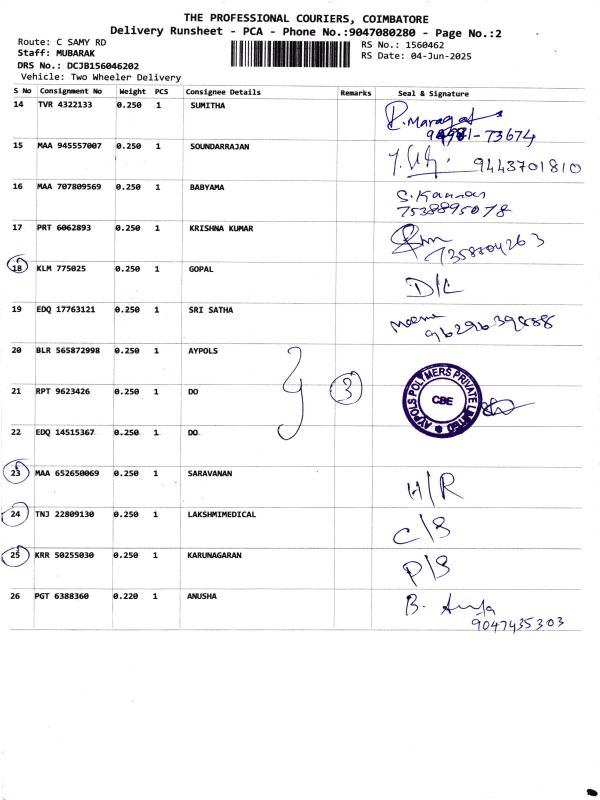 THE PROFESSIONAL COURIERS, COIMBATORE
Delivery Runsheet - PCA - Phone No.:9047080280 - Page No.:2
Route: C SAMY RD
RS No.: 1560462
Staff: MUBARAK
RS Date: 04-Jun-2025
DRS No.: DCJB156046202
Vehicle: Two Wheeler Delivery
S No Consignment No Weight PCS Consignee Details Remarks Seal & Signature
14 TVR 4322133 0.250 1 SUMITHA
15 MAA 945557007 0.250 1 SOUNDARRAJAN 9443701810
16 MAA 707809569 0.250 1 BABYAMA S. Kannan
7538895078
17 PRT 6062893 0.250 1 KRISHNA KUMAR
7358804263
18 KLM 775025 0.250 1 GOPAL D/L
19 EDQ 17763121 0.250 1 SRI SATHA
9629639888
20 BLR 565872998 0.250 1 AYPOLS
21 RPT 9623426 0.250 1 DO 3 AYPOLS POLYMERS PRIVATE LIMITED CBE
22 EDQ 14515367 0.250 1 DO
23 MAA 652650069 0.250 1 SARAVANAN H/R
24 TNJ 22809130 0.250 1 LAKSHMIMEDICAL C/S
25 KRR 50255030 0.250 1 KARUNAGARAN P/S
26 PGT 6388360 0.220 1 ANUSHA B.
9047435303